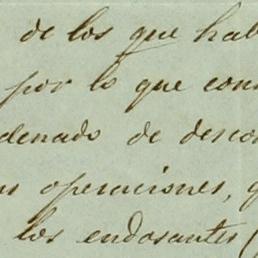 de los que hab
por lo que con
denado de descon
operaciones, q
los endosantes (